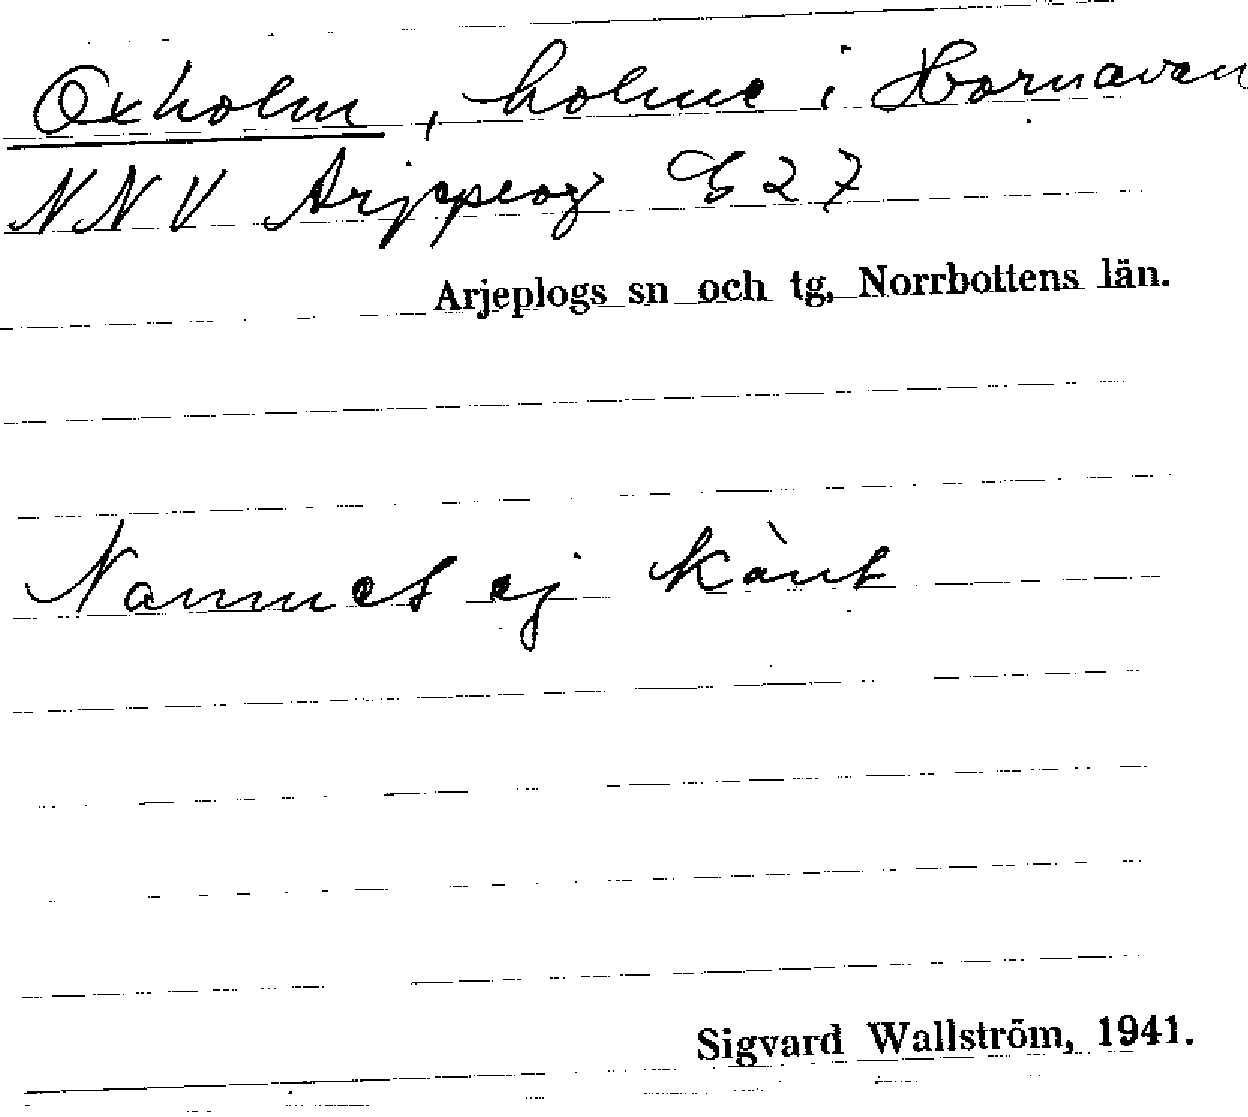 Oxholm, holme i Hornavan
NNV Arjeplog G27
Arjeplogs sn och tg, Norrbottens län.
Namnet ej känt
Sigvard Wallström, 1941.